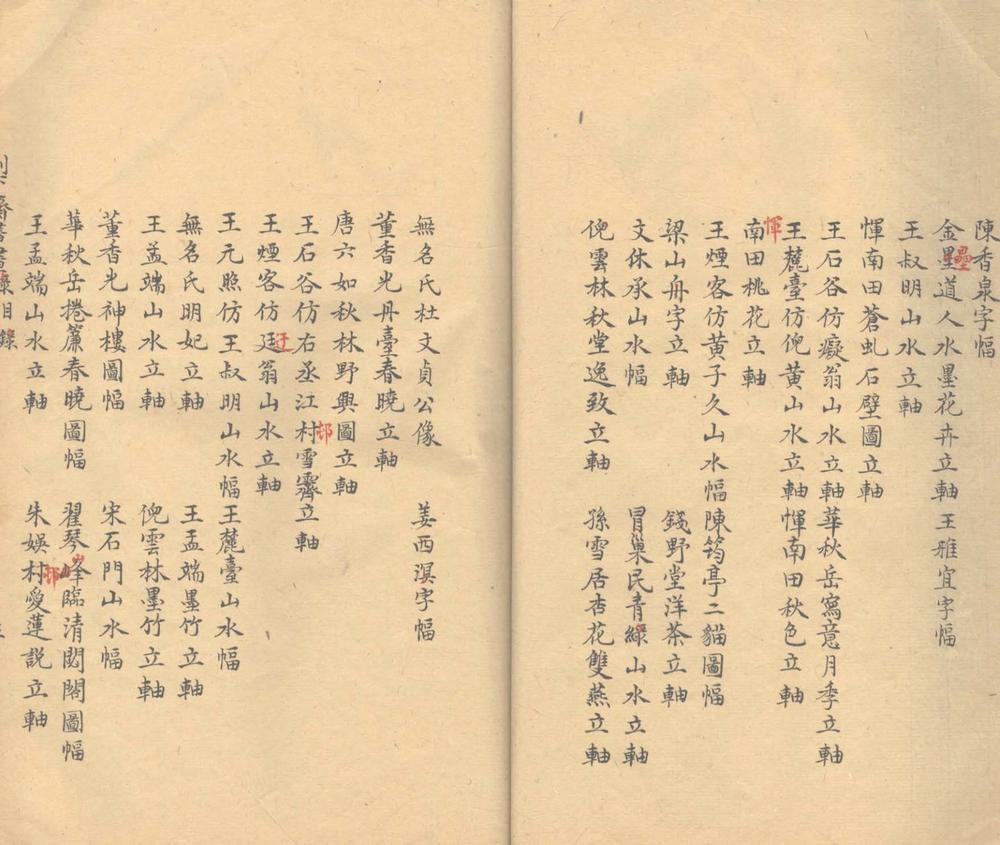 陳香泉字幅
金墨道人水墨花卉立軸 王雅宜字幅
壘
王叔明山水立軸
惲南田蒼虬石壁圖立軸
王石谷仿癡翁山水立軸 華秋岳寫意月季立軸
王麓臺仿倪黃山水立軸 惲南田秋色立軸
惲
南田桃花立軸
王煙客仿黃子久山水幅 陳筠亭二貓圖幅
梁山舟字立軸 錢野堂洋茶立軸
文休承山水幅 冒巢民青綠山水立軸
倪雲林秋堂逸致立軸 孫雪居杏花雙燕立軸
無名氏杜文貞公像 姜西溟字幅
董香光丹臺春曉立軸
唐六如秋林野興圖立軸
邨
王石谷仿右丞江村雪霽立軸
迂
王煙客仿廷翁山水立軸
王元照仿王叔明山水幅 王麓臺山水幅
無名氏明妃立軸 王孟端墨竹立軸
王孟端山水立軸 倪雲林墨竹立軸
董香光神樓圖幅 宋石門山水幅
華秋岳捲簾春曉圖幅 翟琴峰臨清閟閣圖幅
邨
王孟端山水立軸 朱娛村愛蓮說立軸
齋書畫錄目錄